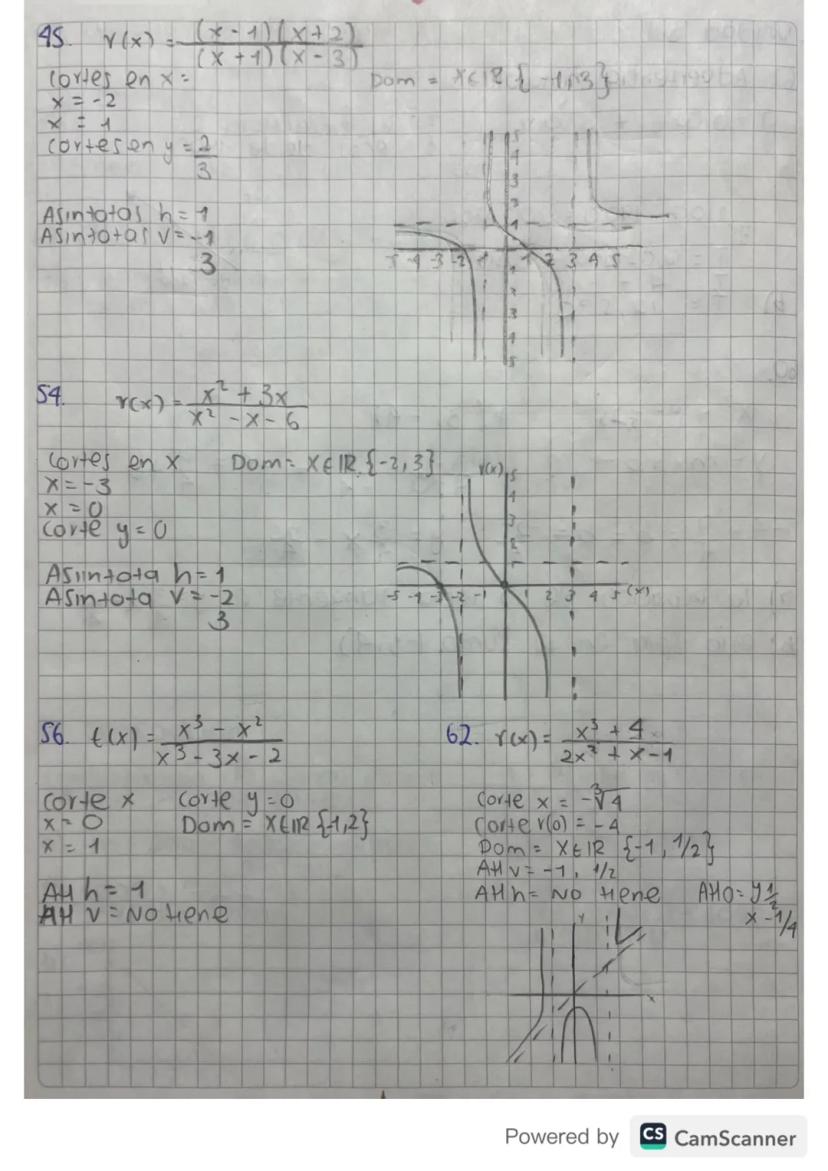 45. r(x) = (x - 1)(x + 2) / (x + 1)(x - 3)
Cortes en x =
x = -2
x = 1
Cortes en y = 2/3
Dom = X∈IR {-1, 3}
Asintotas h = 1
Asintotas v = -1
3
5 4 3 3 1
-5 -4 -3 -2 1 1 2 3 4 5
1 2 3 4 5
54. r(x) = x² + 3x / x² - x - 6
Cortes en x Dom = X∈IR {-2, 3}
x = -3
x = 0
Corte y = 0
Asiintota h = 1
Asintota v = -2
3
r(x) 5 4 3 2 1
-5 -4 -3 -2 -1 1 2 3 4 5 (x)
56. t(x) = x³ - x² / x³ - 3x - 2
Corte x Corte y = 0
x = 0 Dom = X∈IR {-1,2}
x = 1
AH h = 1
AH v = No tiene
62. r(x) = x³ + 4 / 2x² + x - 1
Corte x = -∛4
Corte r(0) = -4
Dom = X∈IR {-1, 1/2}
AH v = -1, 1/2
AH h = No tiene AHO = y 1/2
x - 1/4
y
x
Powered by CS CamScanner